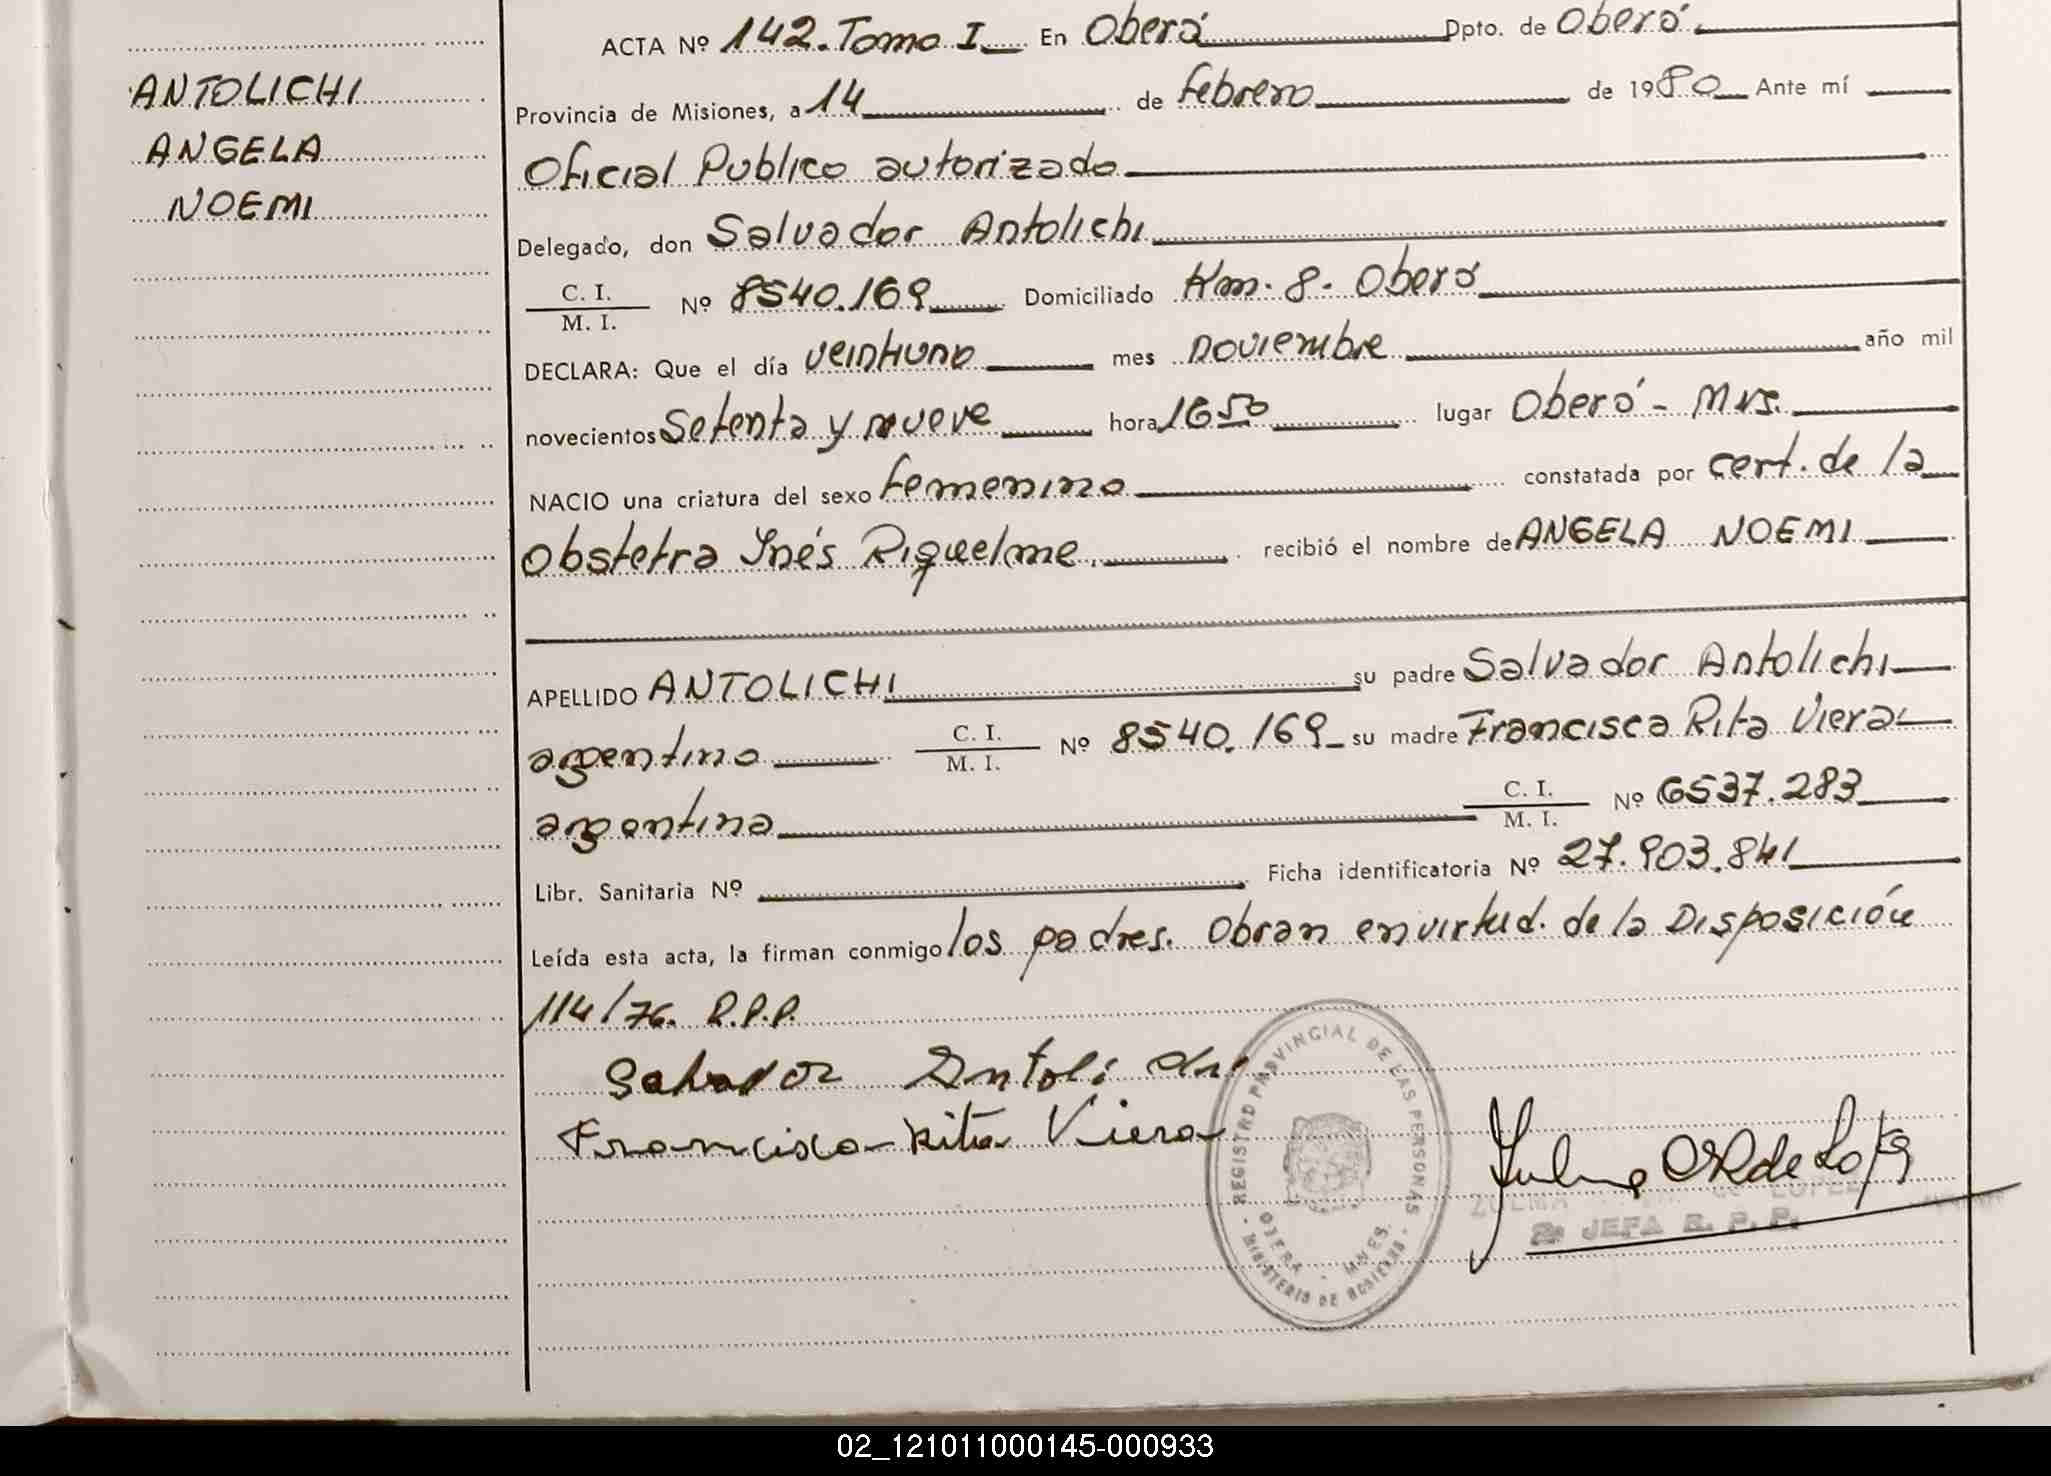 ANTOLICHI
ANGELA
NOEMI
ACTA Nº 142. Tomo I En Oberá Dpto. de Oberá
Provincia de Misiones, a 14 de febrero de 1980 Ante mí
Oficial Publico autorizado
Delegado, don Salvador Antolichi
C. I.
M. I. Nº 8540.169 Domiciliado Km. 8. Oberá
DECLARA: Que el día veintiuno mes noviembre año mil
novecientos Setenta y nueve hora 16 50 lugar Oberá - Mns.
NACIO una criatura del sexo femenino constatada por cert. de la
Obstetra Inés Riquelme. recibió el nombre de ANGELA NOEMI
APELLIDO ANTOLICHI su padre Salvador Antolichi
argentino C. I.
M. I. Nº 8540.169 su madre Francisca Rita Viera
argentina C. I.
M. I. Nº 6537.283
Libr. Sanitaria Nº Ficha identificatoria Nº 27.903.841
Leída esta acta, la firman conmigo los padres. Obran en virtud. de la Disposición
114/76. R.P.P.
Salvador Antolichi
Francisca Rita Viera
REGISTRO PROVINCIAL DE LAS PERSONAS
OBERA - MNES.
MINISTERIO DE GOBIERNO
ZULMA de LOPEZ
2a JEFA R. P. P.
02_121011000145-000933